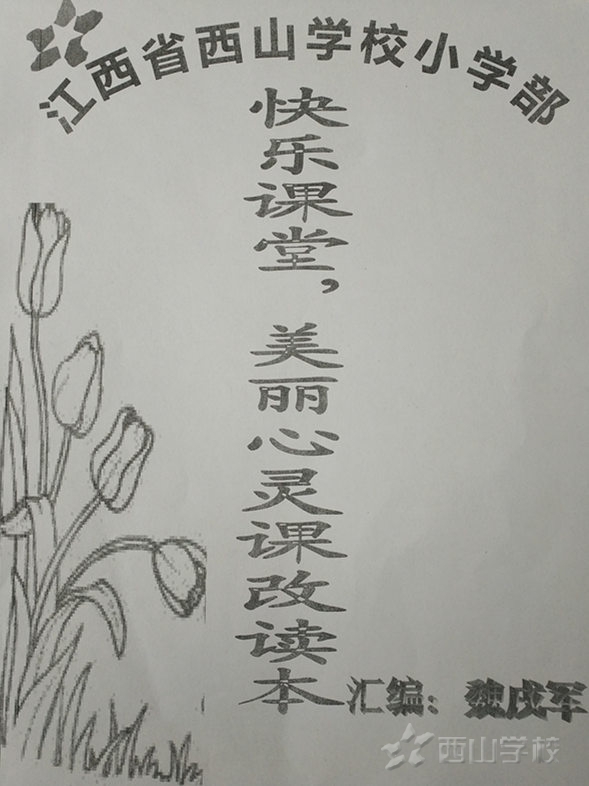 江西省西山学校小学部
快乐课堂，美丽心灵课改读本
汇编：魏成军
西山学校